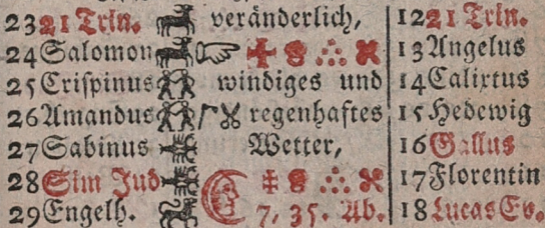 23 21 Trin. veränderlich, 12 21 Trin.
24 Salomon 13 Angelus
25 Crispinus windiges und 14 Calixtus
26 Amandus regenhaftes 15 Hedewig
27 Sabinus Wetter, 16 Gallus
28 Sim Jud 17 Florentin
29 Engelh. 7, 35. Ab. 18 Lucas Ev.